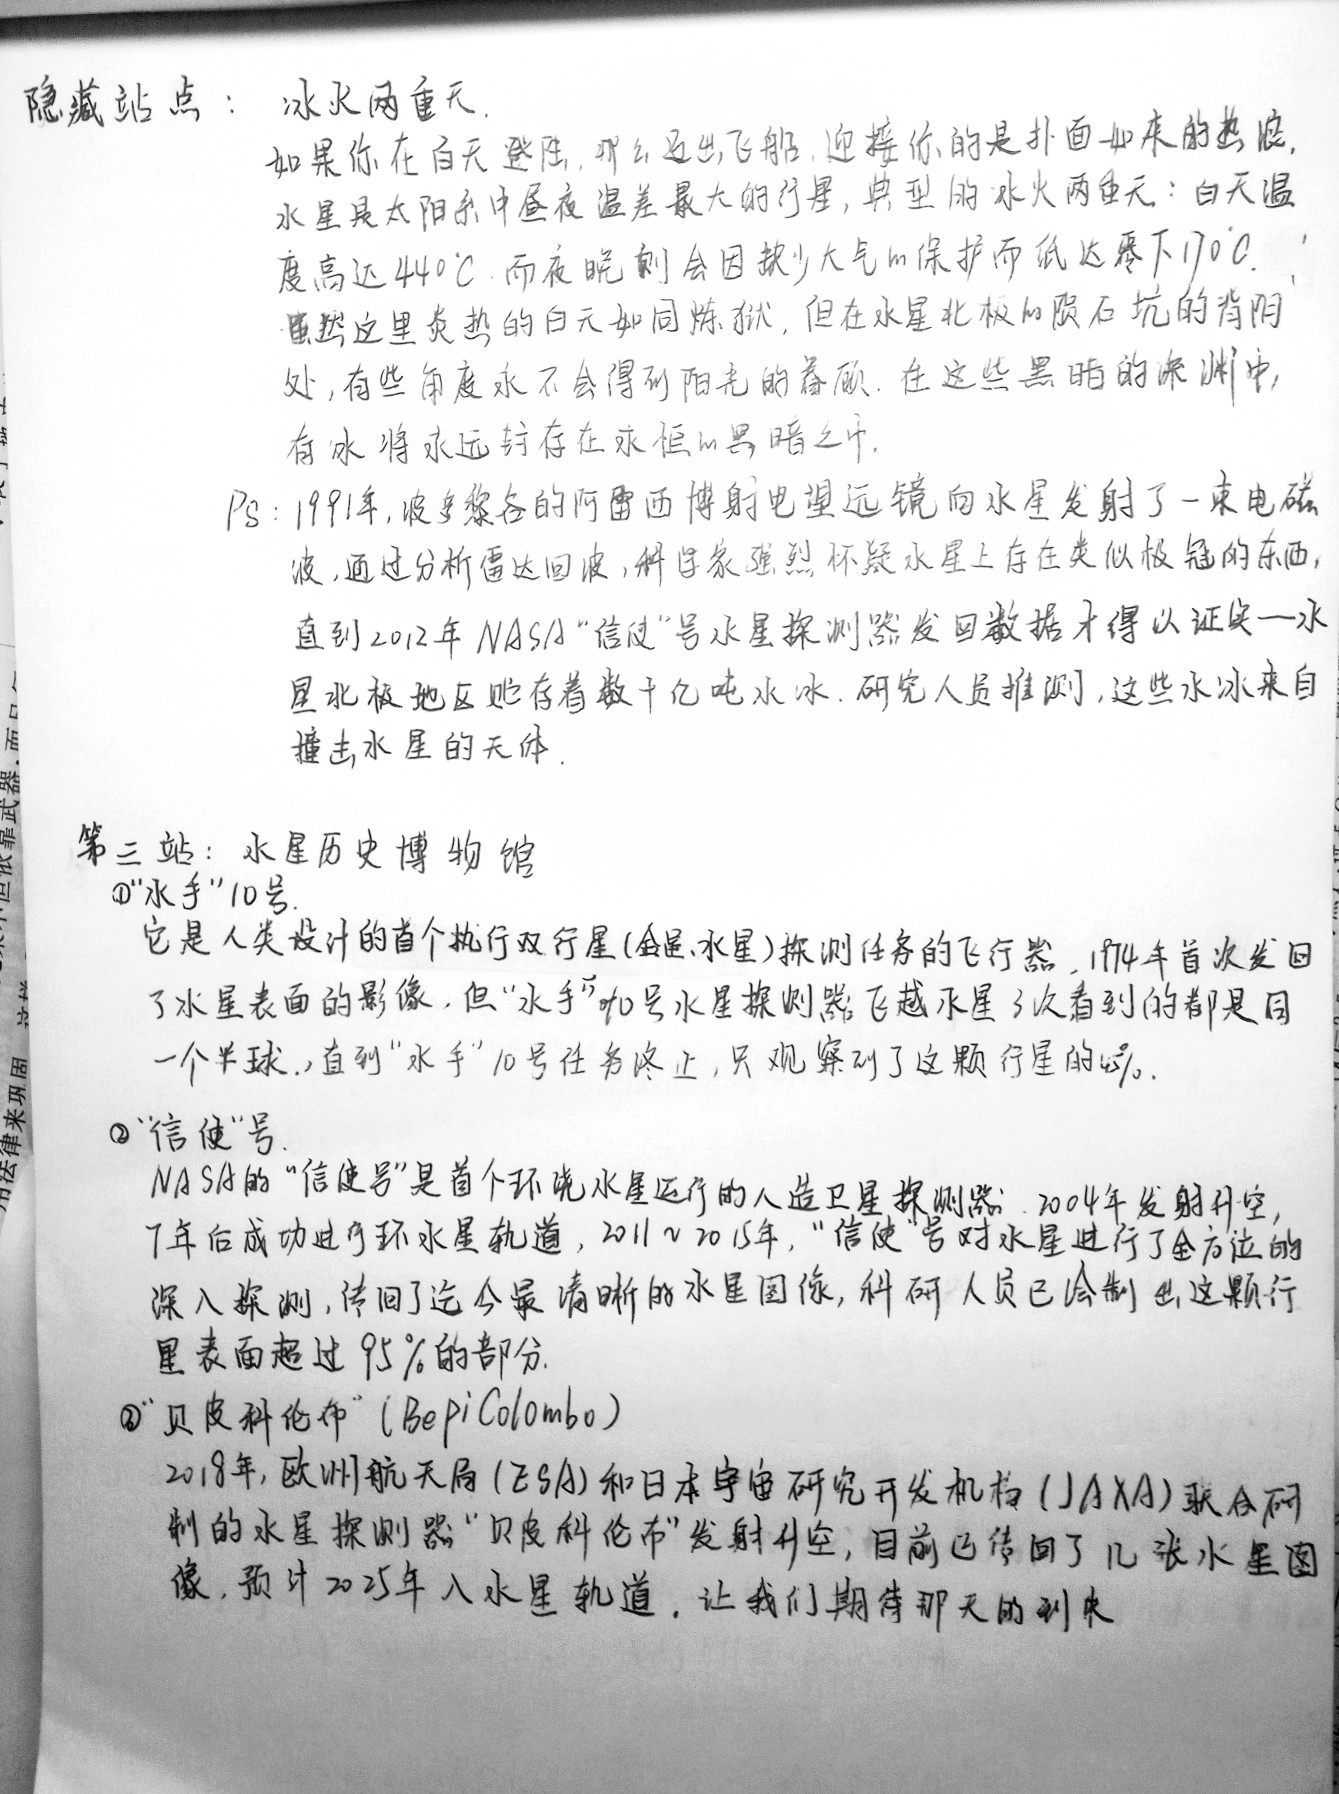 隐藏站点： 冰火两重天.
如果你在白天登陆,那么迈出飞船,迎接你的是扑面如来的热浪,
水星是太阳系中昼夜温差最大的行星,典型的冰火两重天：白天温
度高达440℃.而夜晚则会因缺少大气的保护而低达零下170℃.
虽然这里炎热的白天如同炼狱,但在水星北极的陨石坑的背阴
处,有些角度永不会得到阳光的眷顾.在这些黑暗的深渊中,
存冰将永远封存在永恒的黑暗之中.
Ps：1991年,波多黎各的阿雷西博射电望远镜向水星发射了一束电磁
波,通过分析雷达回波,科学家强烈怀疑水星上存在类似极冠的东西,
直到2012年NASA“信使”号水星探测器发回数据才得以证实—水
星北极地区贮存着数千亿吨水冰.研究人员推测,这些水冰来自
撞击水星的天体.
第三站：水星历史博物馆
①“水手”10号.
它是人类设计的首个执行双行星(金星、水星)探测任务的飞行器,1974年首次发回
了水星表面的影像,但“水手”10号水星探测器飞越水星3次看到的都是同
一个半球.,直到“水手”10号任务终止,只观察到了这颗行星的45%.
②“信使”号.
NASA的“信使号”是首个环绕水星运行的人造卫星探测器.2004年发射升空,
7年后成功进行环水星轨道,2011~2015年,“信使”号对水星进行了全方位的
深入探测,传回了迄今最清晰的水星图像,科研人员已绘制出这颗行
星表面超过95%的部分.
③“贝皮科伦布”(BepiColombo)
2018年,欧洲航天局(ESA)和日本宇宙研究开发机构(JAXA)联合研
制的水星探测器“贝皮科伦布”发射升空,目前已传回了几张水星图
像,预计2025年入水星轨道,让我们期待那天的到来